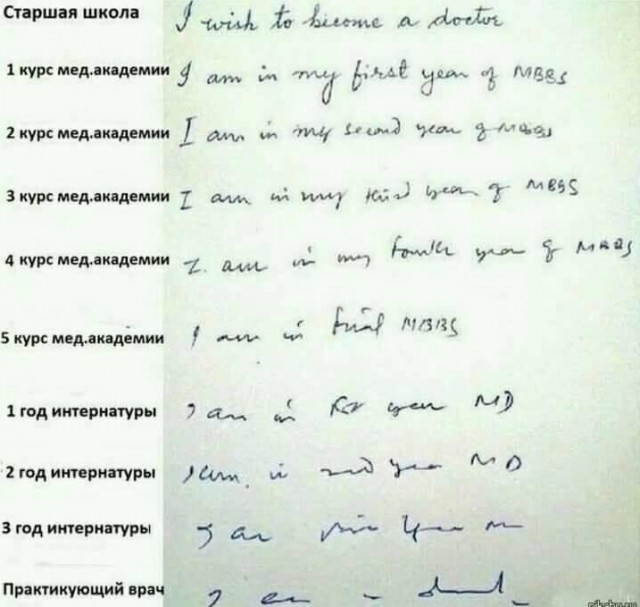 Старшая школа I wish to become a doctor
1 курс мед.академии I am in my first year of MBBS
2 курс мед.академии I am in my second year of MBBS
3 курс мед.академии I am in my third year of MBBS
4 курс мед.академии I am in my fourth year of MBBS
5 курс мед.академии I am in final MBBS
1 год интернатуры I am in year MD
2 год интернатуры I am in year MD
3 год интернатуры
Практикующий врач